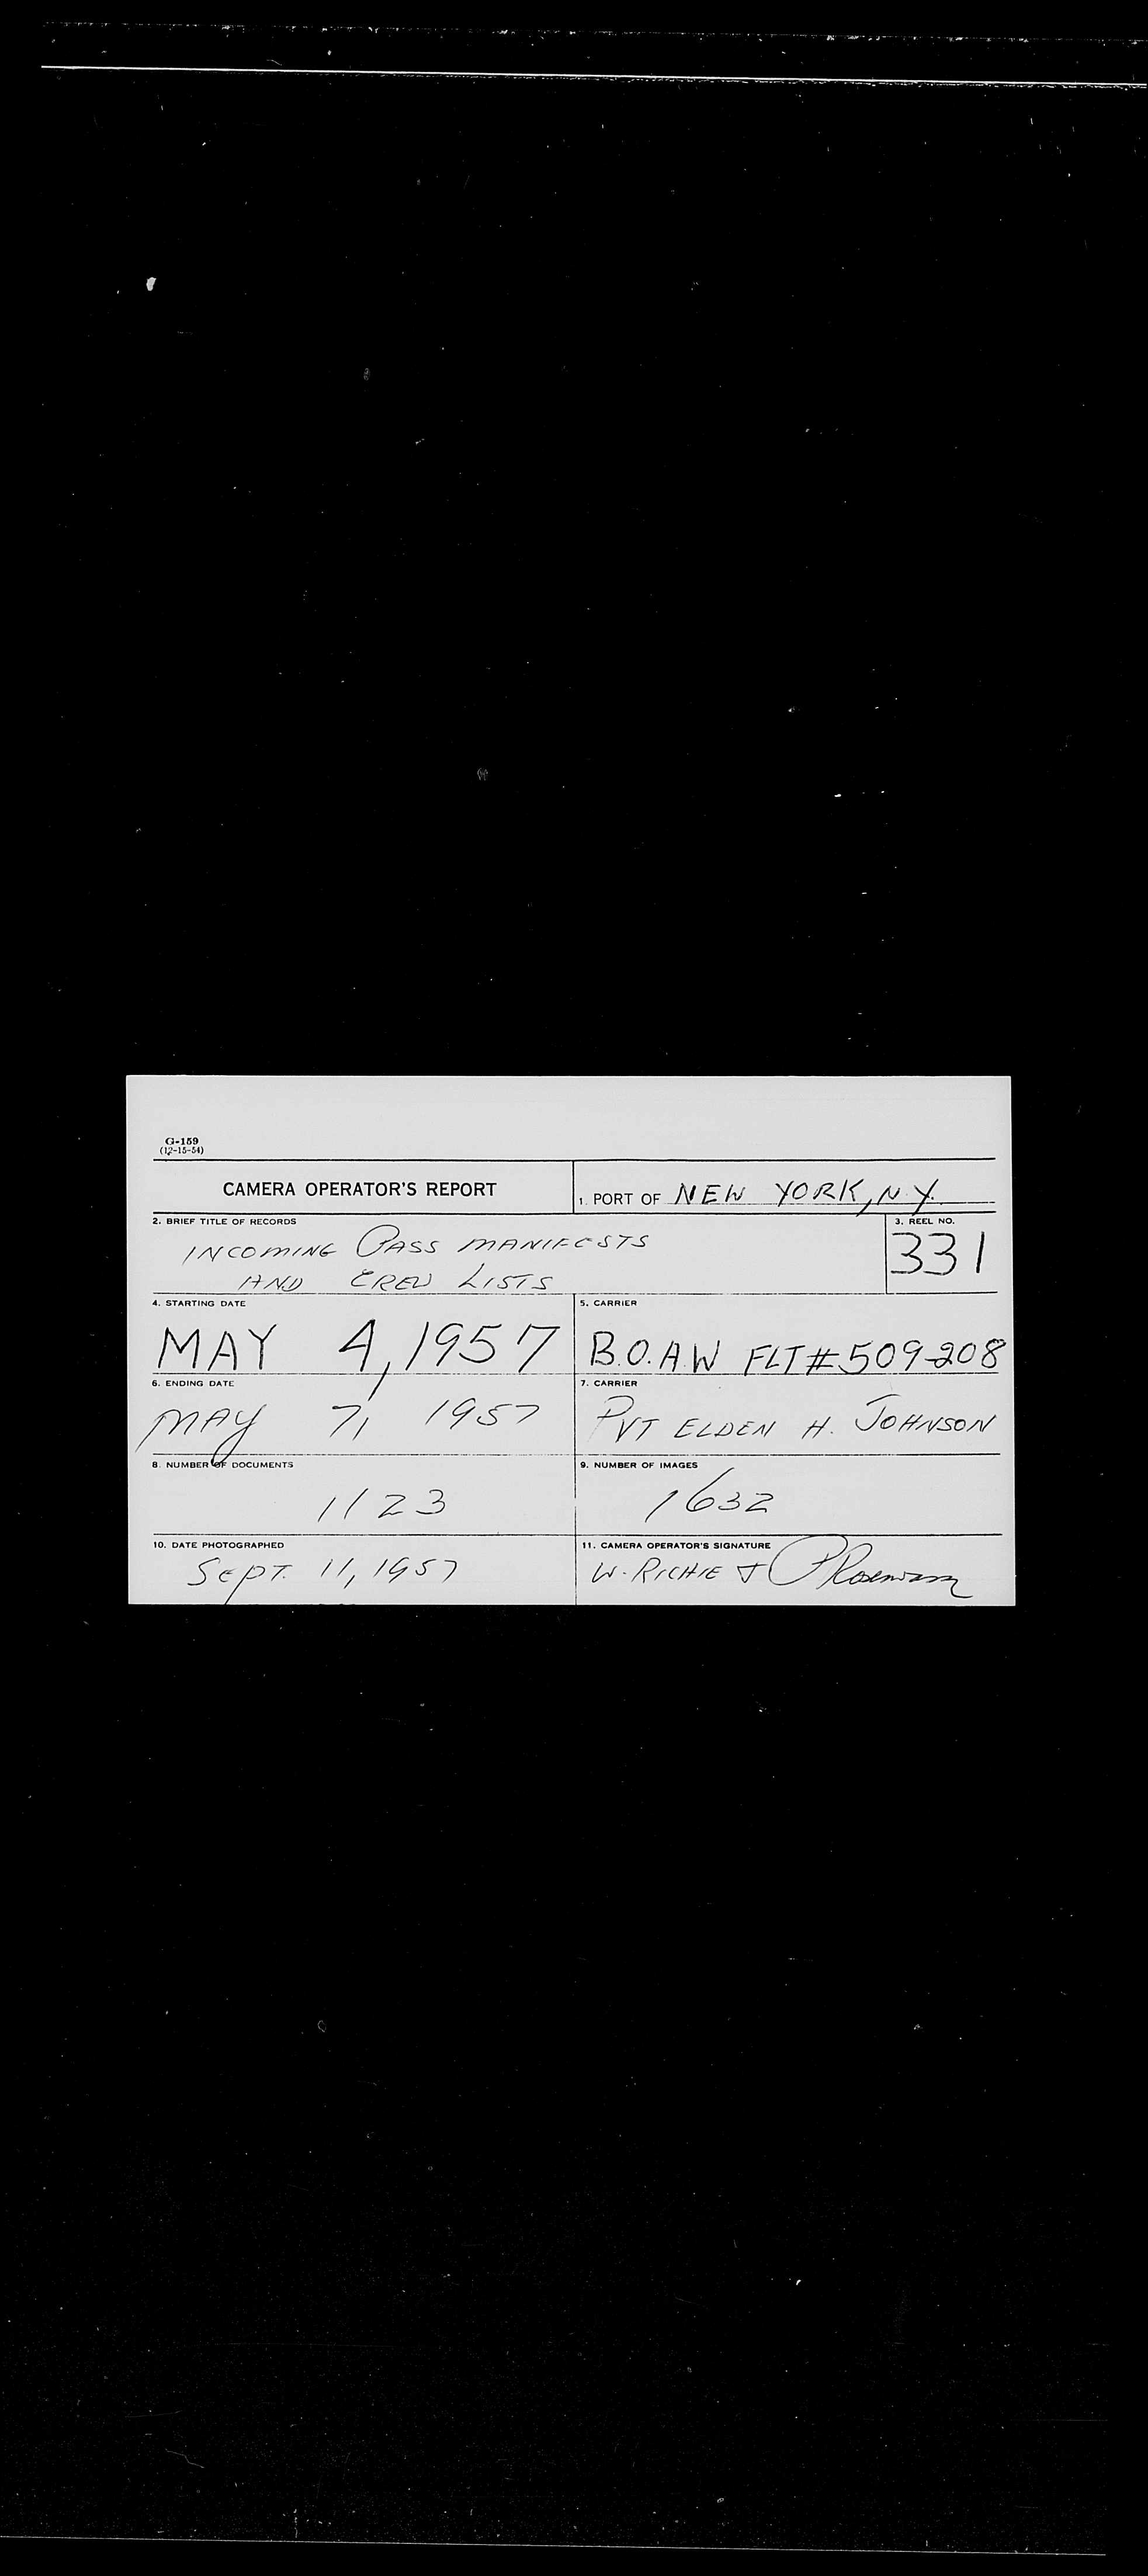 G-159
(12-15-54)
CAMERA OPERATOR'S REPORT
1. PORT OF NEW YORK, N.Y.
2. BRIEF TITLE OF RECORDS
INCOMING PASS MANIFESTS
AND CREW LISTS
3. REEL NO.
331
4. STARTING DATE
MAY 4, 1957
5. CARRIER
B.O.A.W FLT # 509-208
6. ENDING DATE
MAY 7, 1957
7. CARRIER
PVT ELDEN H. JOHNSON
8. NUMBER OF DOCUMENTS
1123
9. NUMBER OF IMAGES
1632
10. DATE PHOTOGRAPHED
SEPT. 11, 1957
11. CAMERA OPERATOR'S SIGNATURE
W. RICHIE